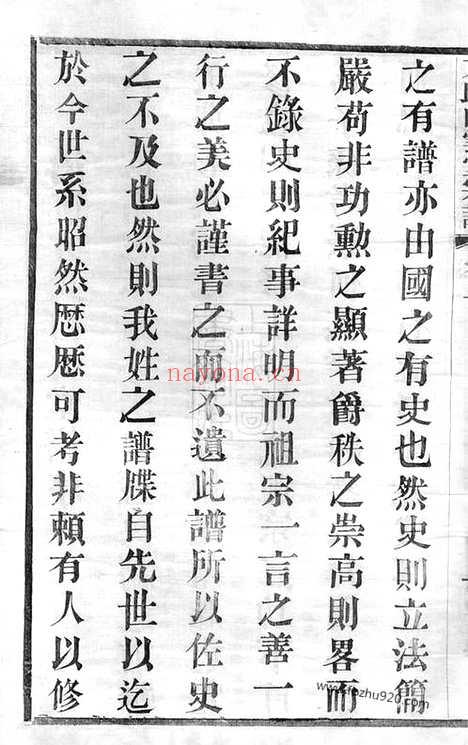 之有譜亦由國之有史也然史則立法簡
嚴苟非功勲之顯著爵秩之崇高則畧而
不錄史則紀事詳明而祖宗一言之善一
行之美必謹書之而不遺此譜所以佐史
之不及也然則我姓之譜牒自先世以迄
於今世系昭然厯厯可考非賴有人以修
nayona.cn
www.fozhu920.com